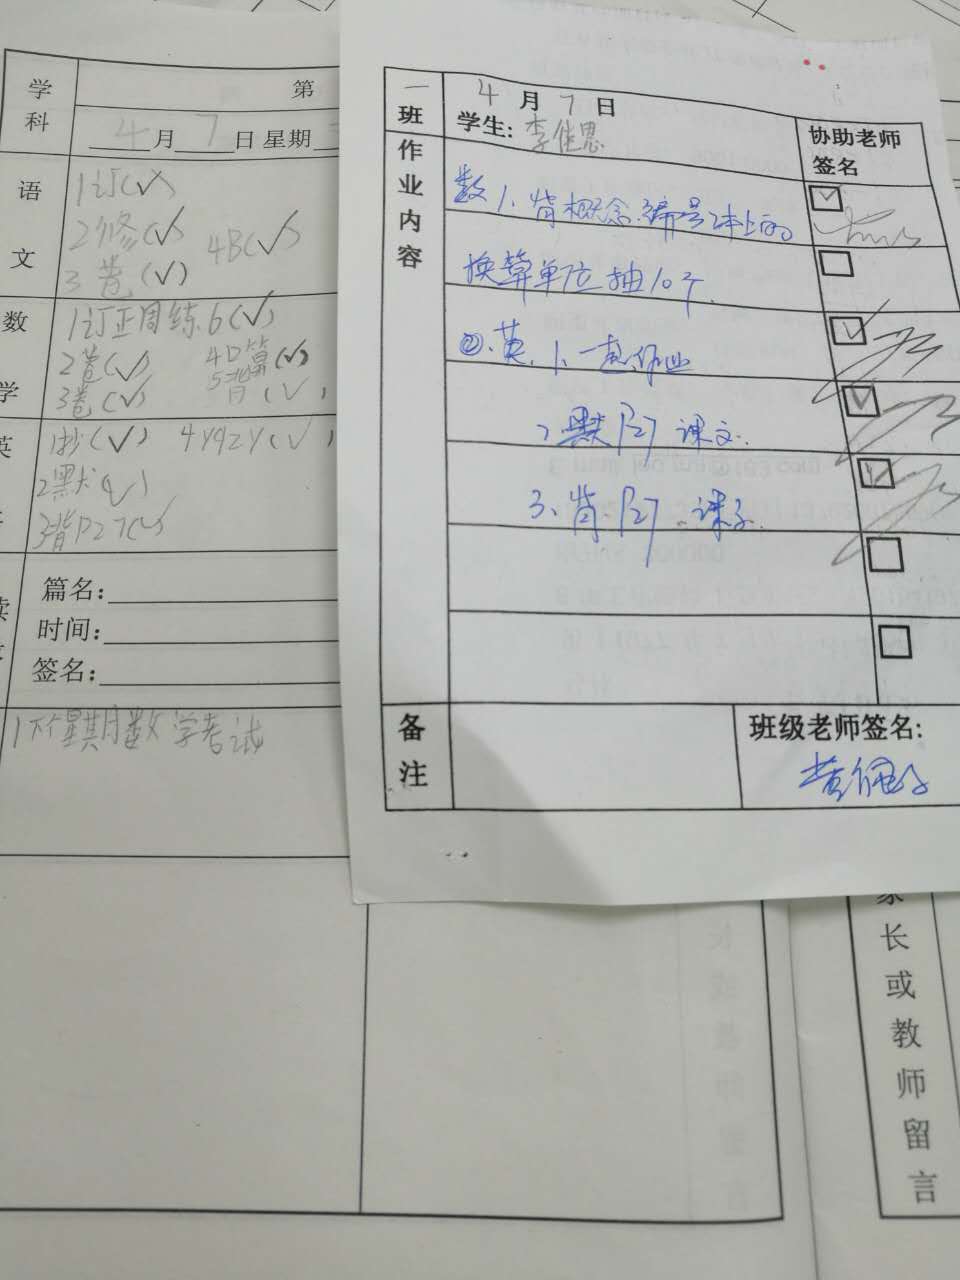 学科
第
4月7日 星期
语文
1订(✓)
2修(✓)
4B(✓)
3卷(✓)
数学
1订正周练6(✓)
2卷(✓)
4口算(✓)
3卷(✓)
5背(✓)
英
1抄(✓)
2默(✓)
3背P27(✓)
篇名:
时间:
签名:
1下个星期数学考试
一班
4月7日
学生:
协助老师签名
作业内容
数1、背概念.编号2本上的
换算单位抽10个.
②、英.1、一起作业
2.默P27课文.
3、背P27课文.
备注
班级老师签名:
家长或教师留言